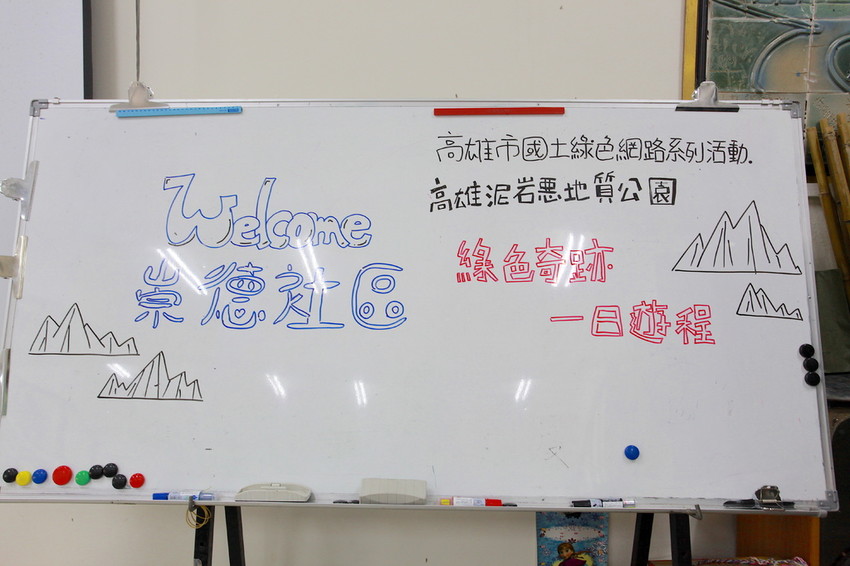 Welcome
崇德社區
高雄市國土綠色網路系列活動.
高雄泥岩悪地質公園
綠色奇跡
一日遊程